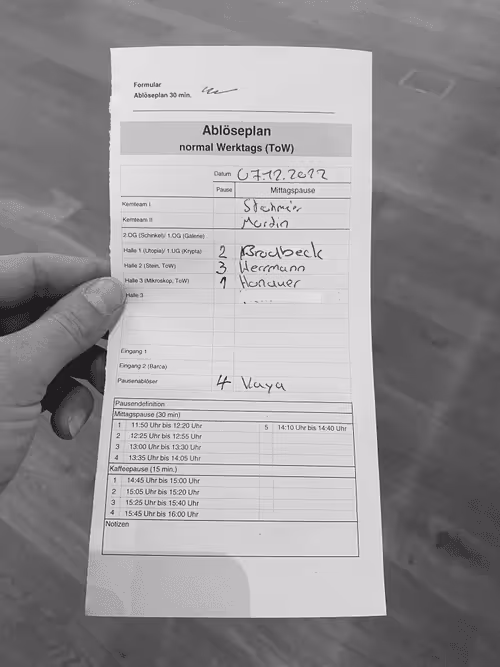 Formular
Ablöseplan 30 min.
Ablöseplan
normal Werktags (ToW)
Datum 07.12.2022
Pause Mittagspause
Kernteam I
Kernteam II Martin
2.OG (Schinkel)/ 1.OG (Galerie)
Halle 1 (Utopia)/ 1.UG (Krypta) 2 Brodbeck
Halle 2 (Stein, ToW) 3 Herrmann
Halle 3 (Mikroskop, ToW) 1 Hanauer
Halle 3
Eingang 1
Eingang 2 (Barca)
Pausenablöser 4 Kaya
Pausendefinition
Mittagspause (30 min)
1 11:50 Uhr bis 12:20 Uhr 5 14:10 Uhr bis 14:40 Uhr
2 12:25 Uhr bis 12:55 Uhr
3 13:00 Uhr bis 13:30 Uhr
4 13:35 Uhr bis 14:05 Uhr
Kaffeepause (15 min.)
1 14:45 Uhr bis 15:00 Uhr
2 15:05 Uhr bis 15:20 Uhr
3 15:25 Uhr bis 15:40 Uhr
4 15:45 Uhr bis 16:00 Uhr
Notizen